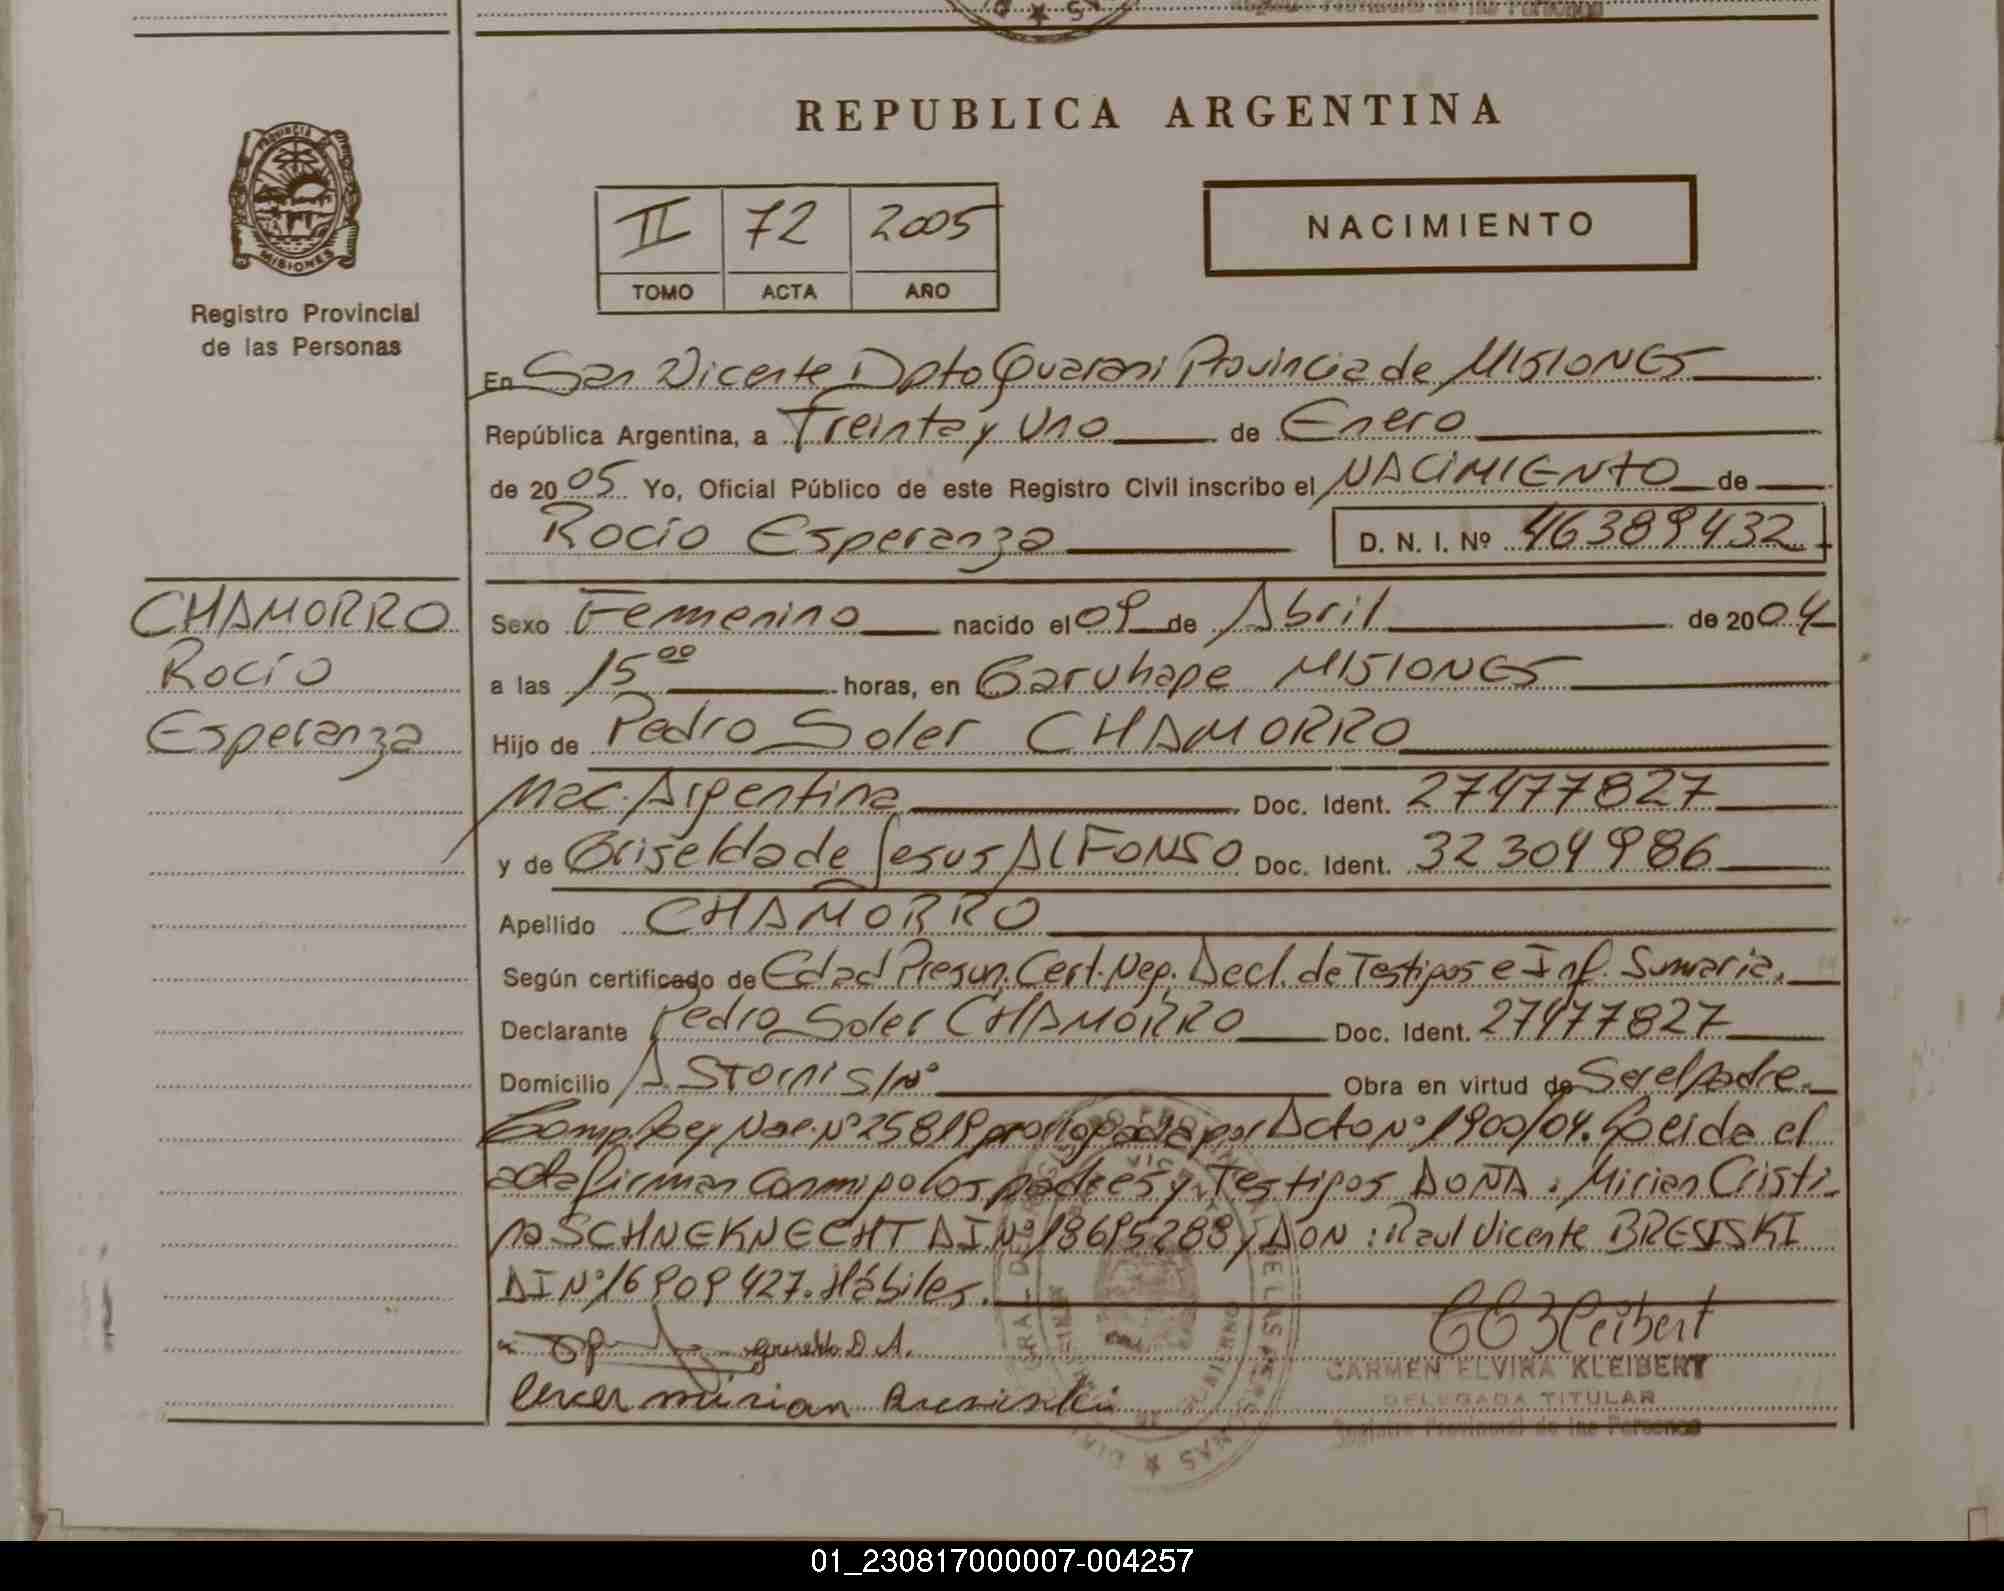 REPUBLICA ARGENTINA
PROVINCIA DE MISIONES
Registro Provincial
de las Personas
II 72 2005
TOMO ACTA AÑO
NACIMIENTO
En San Vicente Dpto Guarani Provincia de MISIONES
República Argentina, a Treinta y Uno de Enero
de 2005 Yo, Oficial Público de este Registro Civil inscribo el NACIMIENTO de
Rocío Esperanza D. N. I. Nº 46389432
CHAMORRO
Rocío
Esperanza
Sexo Femenino nacido el 09 de Abril de 2004
a las 15⁰⁰ horas, en Garuhape MISIONES
Hijo de Pedro Soler CHAMORRO
Nac. Argentina Doc. Ident. 27477827
y de Griselda de Jesus ALFONSO Doc. Ident. 32304986
Apellido CHAMORRO
Según certificado de Edad Presun. Cert. Neg. Decl. de Testigos e Inf. Sumaria.
Declarante Pedro Soler CHAMORRO Doc. Ident. 27477827
Domicilio A. Storni S/Nº Obra en virtud de Ser el padre.
Ley Nac. Nº 25819 prorrogada por Dcto Nº 1900/04. Leida el
acta firman conmigo los padres y Testigos DOÑA: Mirian Cristi-
na SCHNEKNECHT DI Nº 18695288 y DON: Raul Vicente BRESISKI
DI Nº 16909427. Hábiles.
CARMEN ELVIRA KLEIBERT
DELEGADA TITULAR
Registro Provincial de las Personas
01_230817000007-004257